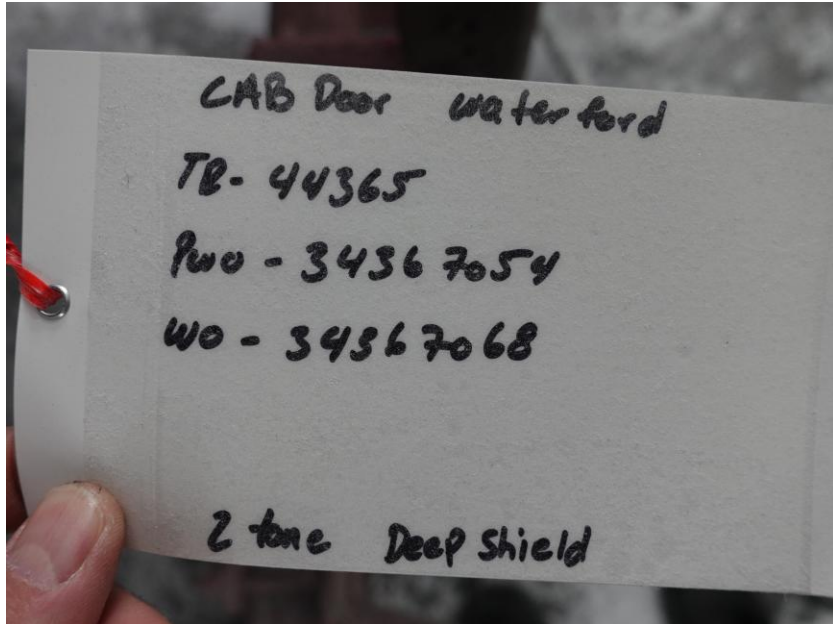 CAB Door waterford
TB- 44365
Pwo - 34367054
WO - 34367068
2 tone Deep shield